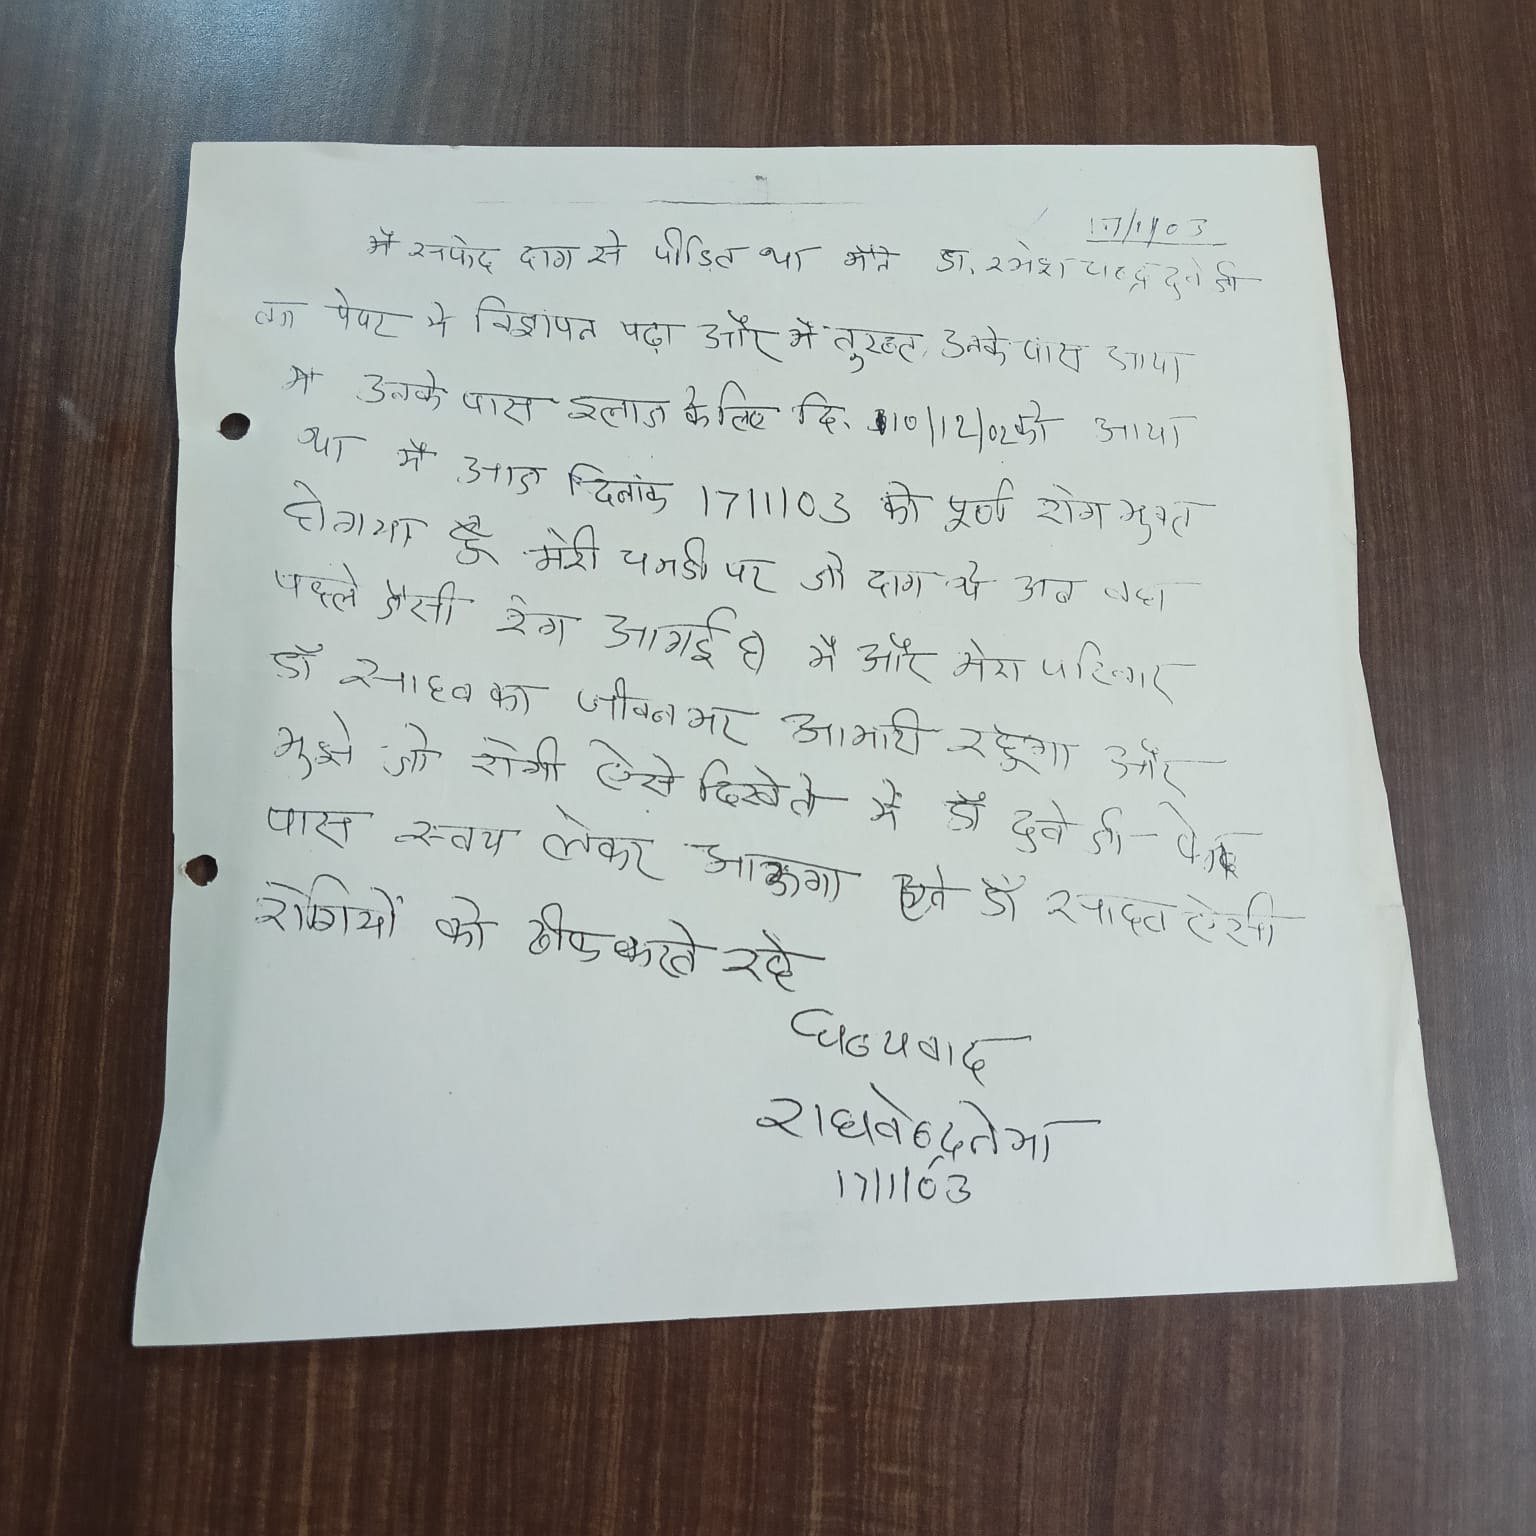 17/1/03
मैं सफेद दाग से पीडित था मैंने डा. रमेश चन्द्र दुबे जी
का पेपर मे विज्ञापन पढ़ा और मैं तुरन्त, उनके पास आया
मै उनके पास इलाज के लिए दि. 10/12/02को आया
था मैं आज दिनांक 17/1/03 को पूर्ण रोग मुक्त
होगया हूँ मेरी चमडी पर जो दाग थे अब वहा
पहले जैसी रंग आगई है मै और मेरा परिवार
डॉ साहब का जीवन भर आभारी रहूंगा और
मुझे जो रोगी ऐसे दिखे तो में डॉ दुबे जी के
पास स्वयं लेकर आऊगा डॉ साहब ऐसी
रोगियों को ठीक करते रहे
धन्यवाद
राघवेन्द्र तेमा
17/1/03